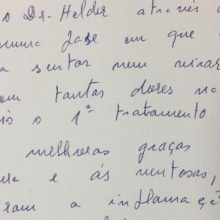 o Dr. Helder através
numa fase em que
a sentar nem virar
com tantas dores na
o 1º tratamento
melhoras graças
e e ás ventosas,
ram a inflamaçã